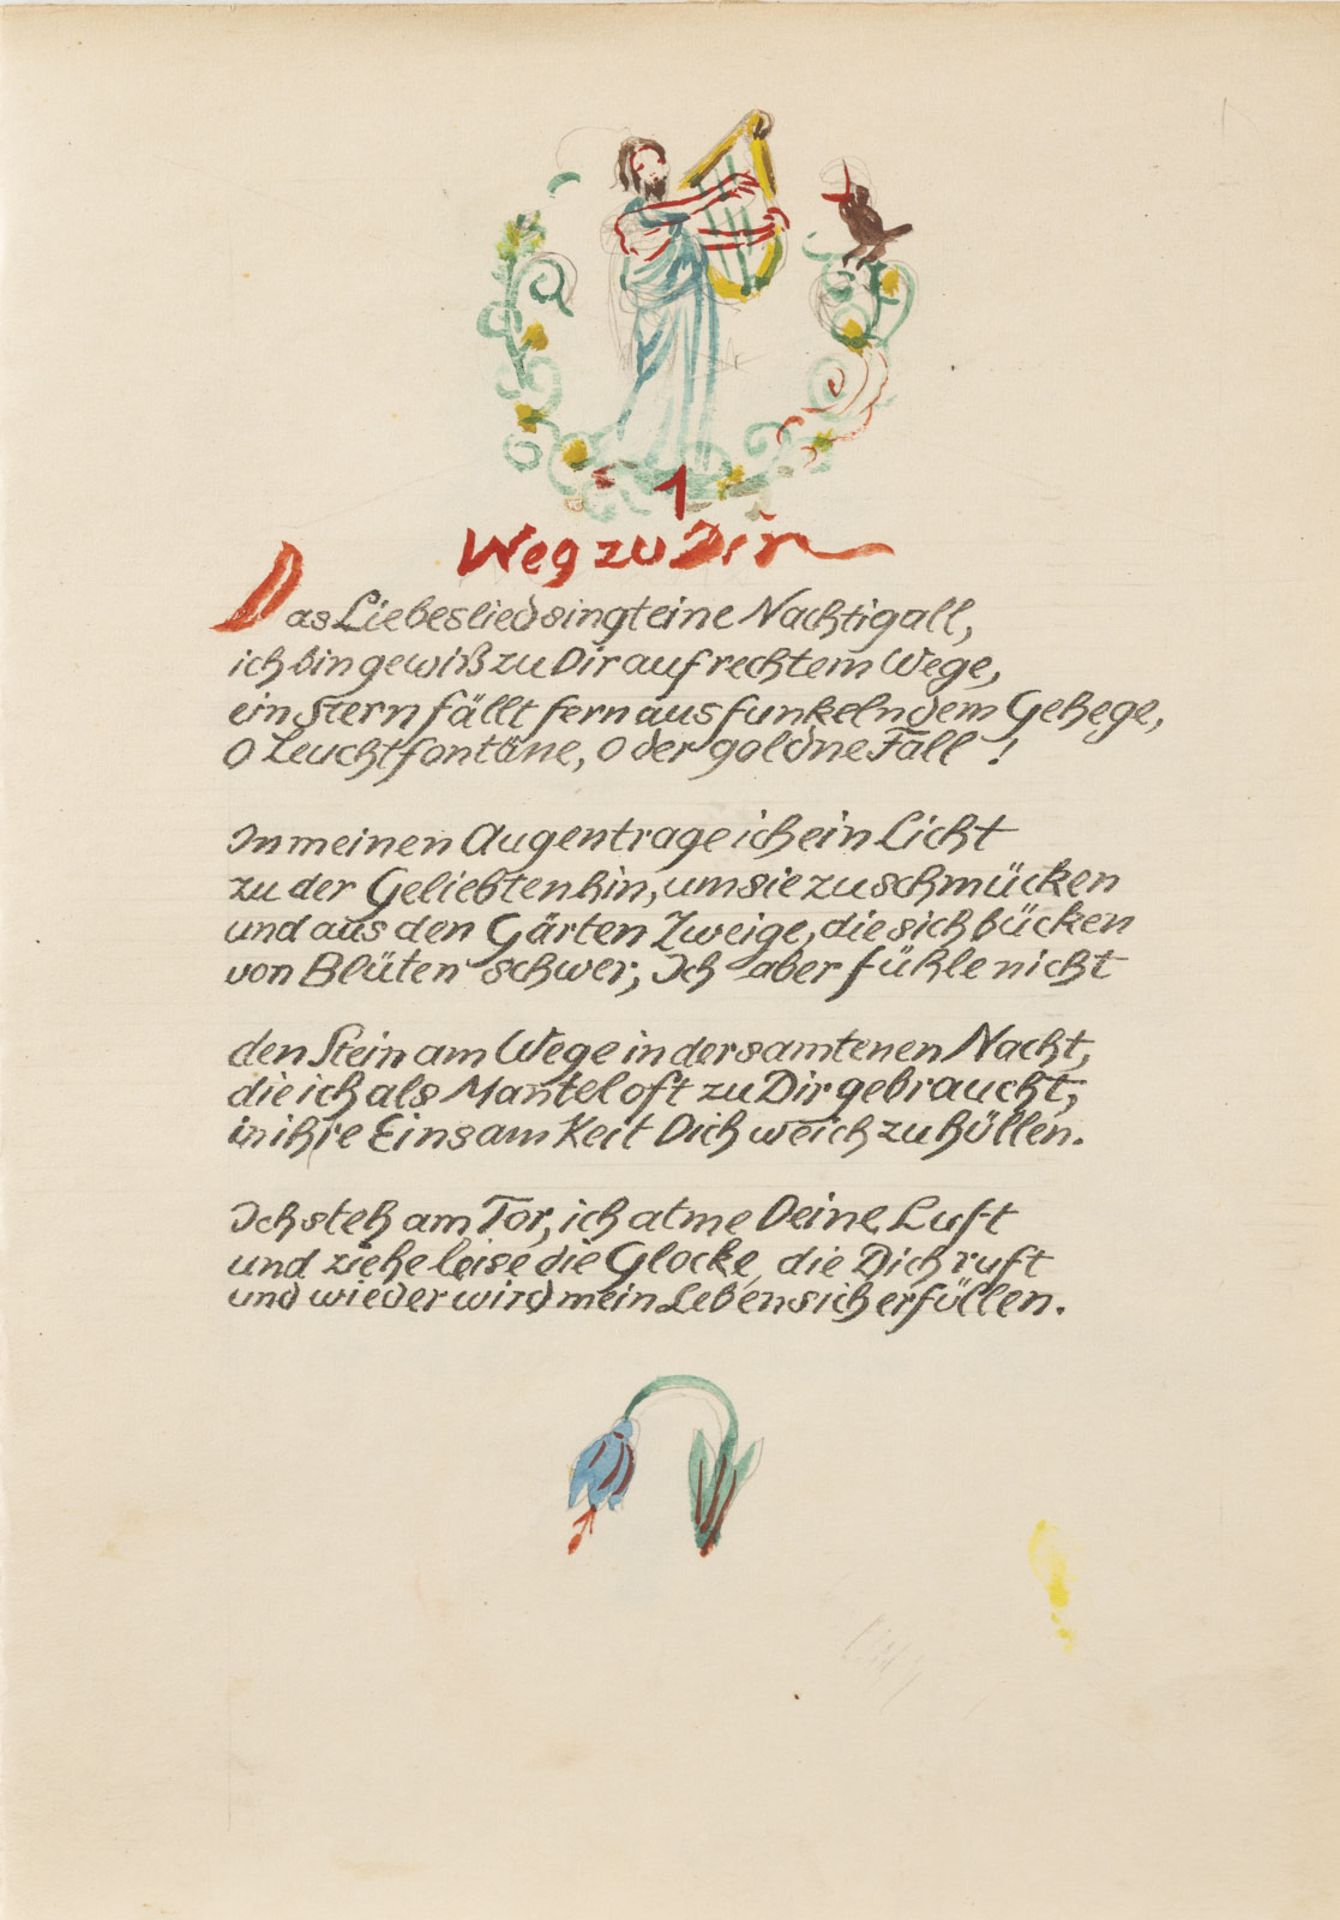 1
Weg zu Dir
Das Liebeslied singt eine Nachtigall,
ich bin gewiß zu Dir auf rechtem Wege,
ein Stern fällt fern aus funkelndem Gehege,
O Leuchtfontäne, O der goldne Fall!
In meinen Augen trage ich ein Licht
zu der Geliebten hin, um sie zu schmücken
und aus den Gärten Zweige, die sich bücken
von Blüten schwer; Ich aber fühle nicht
den Stein am Wege in der samtenen Nacht,
die ich als Mantel oft zu Dir gebraucht,
in ihre Einsamkeit Dich weich zu hüllen.
Ich steh am Tor, ich atme Deine Luft
und ziehe leise die Glocke, die Dich ruft
und wieder wird mein Leben sich erfüllen.